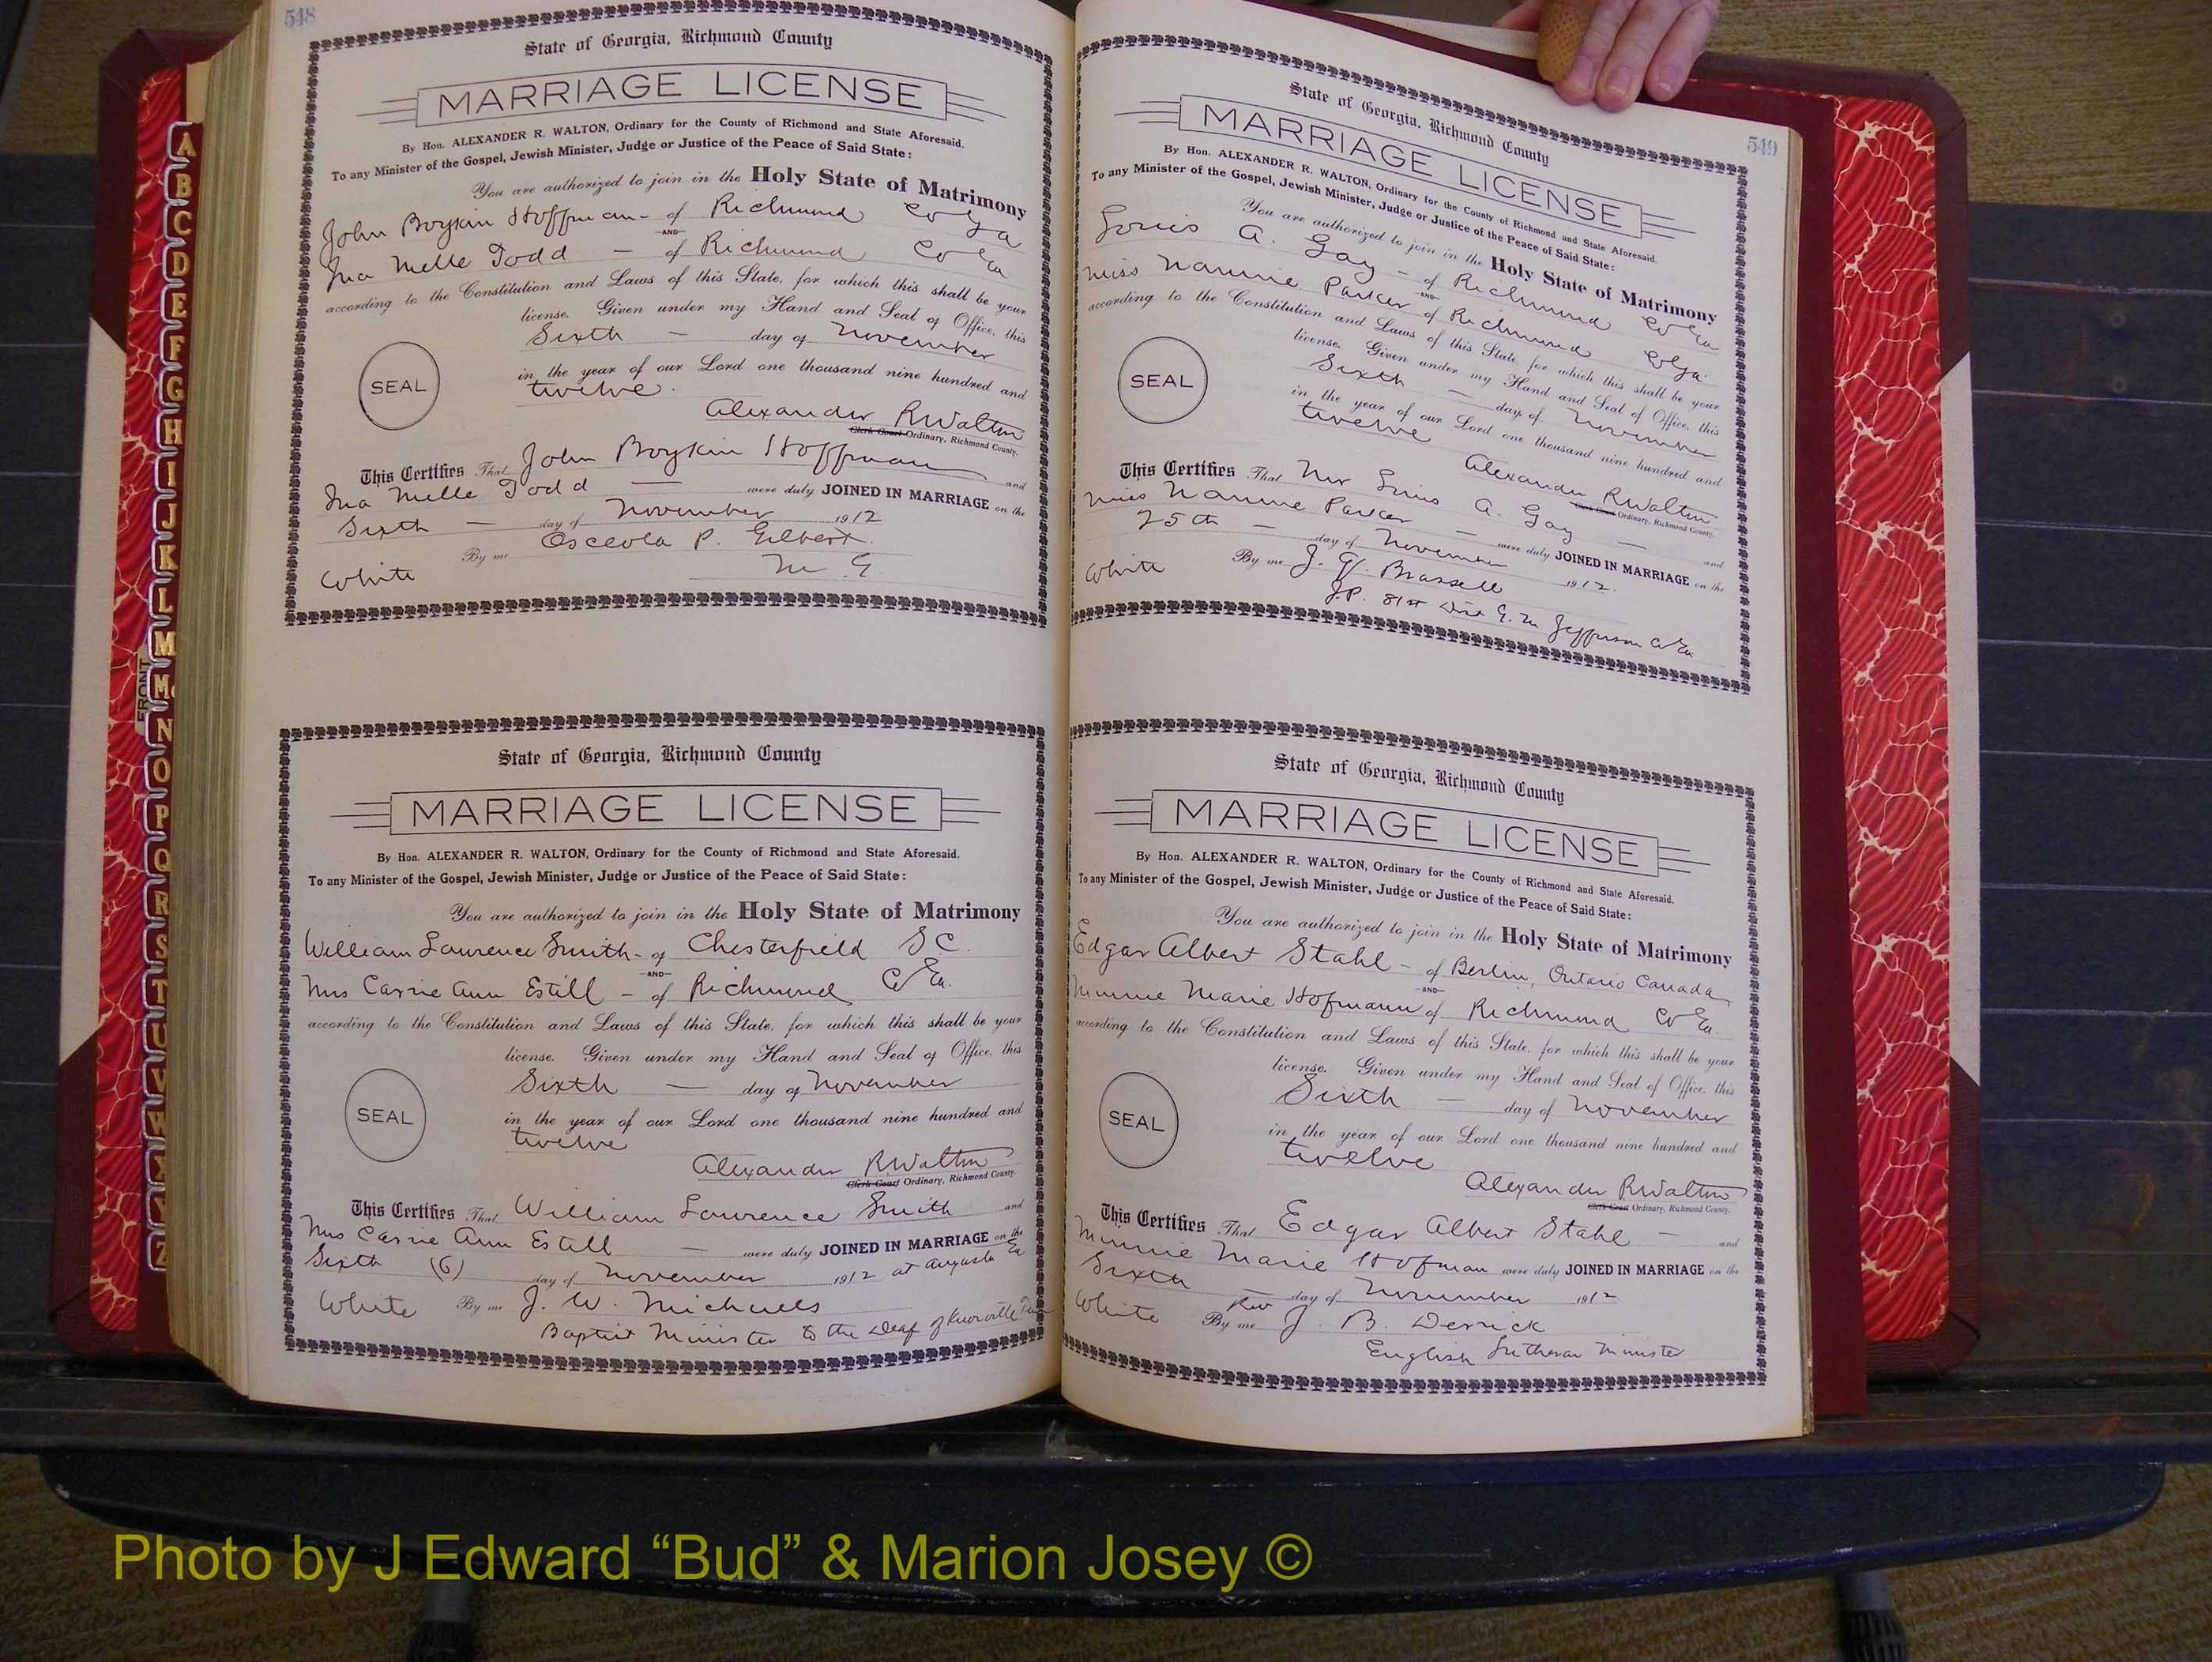 548
State of Georgia, Richmond County
MARRIAGE LICENSE
By Hon. ALEXANDER R. WALTON, Ordinary for the County of Richmond and State Aforesaid.
To any Minister of the Gospel, Jewish Minister, Judge or Justice of the Peace of Said State:
You are authorized to join in the Holy State of Matrimony
John Boykin Hoffman - of Richmond Co Ga
-AND-
Ina Melle Todd - of Richmond Co Ga
according to the Constitution and Laws of this State, for which this shall be your
license. Given under my Hand and Seal of Office, this
Sixth - day of November
in the year of our Lord one thousand nine hundred and
twelve.
SEAL
Alexander R Walton
Clerk Court Ordinary, Richmond County.
This Certifies That John Boykin Hoffman and
Ina Melle Todd - were duly JOINED IN MARRIAGE on the
Sixth - day of November 1912
By me Osceola P. Gilbert.
White M. G.
State of Georgia, Richmond County
MARRIAGE LICENSE
By Hon. ALEXANDER R. WALTON, Ordinary for the County of Richmond and State Aforesaid.
To any Minister of the Gospel, Jewish Minister, Judge or Justice of the Peace of Said State:
You are authorized to join in the Holy State of Matrimony
William Lawrence Smith - of Chesterfield S C.
-AND-
Mrs Carrie Ann Estill - of Richmond Co Ga.
according to the Constitution and Laws of this State, for which this shall be your
license. Given under my Hand and Seal of Office, this
Sixth - day of November
in the year of our Lord one thousand nine hundred and
twelve
SEAL
Alexander R Walton
Clerk Court Ordinary, Richmond County.
This Certifies That William Lawrence Smith and
Mrs Carrie Ann Estill - were duly JOINED IN MARRIAGE on the
Sixth (6) day of November 1912 at Augusta Ga
White By me J. W. Michaels
Baptist Minister to the Deaf of Knoxville Tenn
549
State of Georgia, Richmond County
MARRIAGE LICENSE
By Hon. ALEXANDER R. WALTON, Ordinary for the County of Richmond and State Aforesaid.
To any Minister of the Gospel, Jewish Minister, Judge or Justice of the Peace of Said State:
You are authorized to join in the Holy State of Matrimony
Louis A. Gay - of Richmond Co Ga
-AND-
Miss Nannie Parker - of Richmond Co Ga.
according to the Constitution and Laws of this State, for which this shall be your
license. Given under my Hand and Seal of Office, this
Sixth - day of November
in the year of our Lord one thousand nine hundred and
twelve
SEAL
Alexander R Walton
Clerk Court Ordinary, Richmond County.
This Certifies That Mr Louis A. Gay - and
Miss Nannie Parker - were duly JOINED IN MARRIAGE on the
25th - day of November 1912.
White By me J. G. Brassell
J.P. 81st Dist G. M. Jefferson Co Ga.
State of Georgia, Richmond County
MARRIAGE LICENSE
By Hon. ALEXANDER R. WALTON, Ordinary for the County of Richmond and State Aforesaid.
To any Minister of the Gospel, Jewish Minister, Judge or Justice of the Peace of Said State:
You are authorized to join in the Holy State of Matrimony
Edgar Albert Stahl - of Berlin, Ontario Canada
-AND-
Minnie Marie Hofmann of Richmond Co Ga
according to the Constitution and Laws of this State, for which this shall be your
license. Given under my Hand and Seal of Office, this
Sixth - day of November
in the year of our Lord one thousand nine hundred and
twelve
SEAL
Alexander R Walton
Clerk Court Ordinary, Richmond County.
This Certifies That Edgar Albert Stahl - and
Minnie Marie Hofman were duly JOINED IN MARRIAGE on the
Sixth day of November 1912
White By me Rev J. B. Derrick
English Lutheran Minister
A
B
C
D
E
F
G
H
I
J
K
L
M
Mc
N
O
P
Q
R
S
T
U
V
W
X
Y
Z
FRONT
Photo by J Edward “Bud” & Marion Josey ©